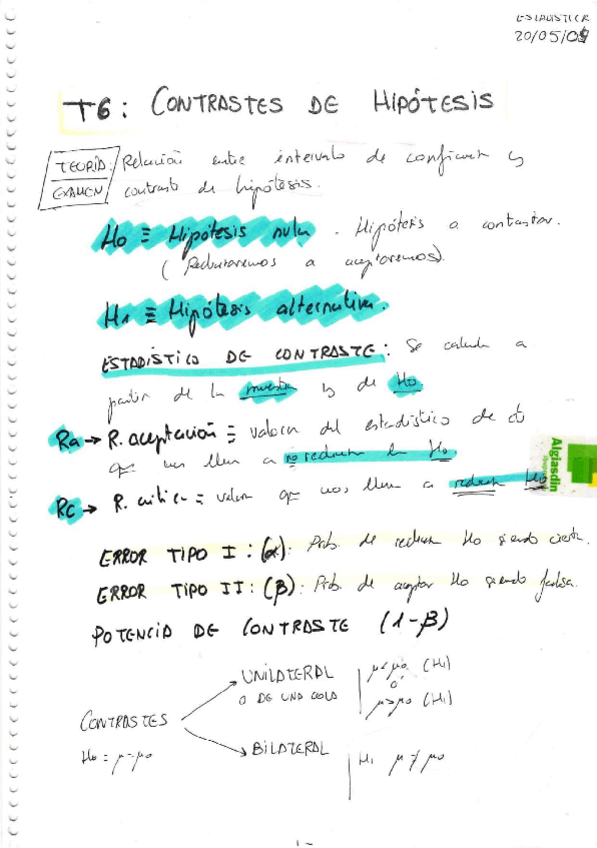 ESTADISTICA
20/05/09
T6: CONTRASTES DE HIPÓTESIS
TEORIA: Relación entre intervalo de confianza y
EXAMEN contraste de hipótesis.
Ho ≡ Hipótesis nula. Hipótesis a contrastar.
(Rechazaremos o aceptaremos).
H1 ≡ Hipótesis alternativa.
ESTADÍSTICO DE CONTRASTE: Se calcula a
partir de la muestra y de Ho
Ra → R. aceptación ≡ valores del estadístico de
que nos llevan a no rechazar la Ho.
Rc → R. critica ≡ valores que nos llevan a rechazar Ho
Algiasdin
ERROR TIPO I: (α): Prob. de rechazar Ho siendo cierta.
ERROR TIPO II: (β): Prob. de aceptar Ho siendo falsa.
POTENCIA DE CONTRASTE (1-β)
UNILATERAL μ<μo (H1)
O DE UNA COLA ó
μ>μo (H1)
CONTRASTES
Ho = μ=μo
BILATERAL H1 μ ≠ μo